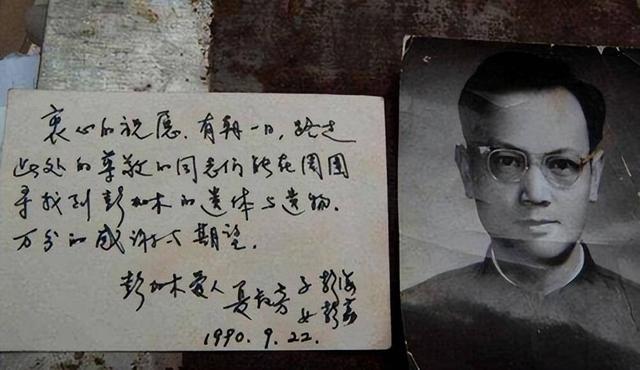 衷心的祝愿，有朝一日，路过
此处的尊敬的同志们能在周围
寻找到彭加木的遗体与遗物.
万分的感谢与期望.
彭加木爱人 夏叔芳 子 彭海
女 彭荔
1990.9.22.